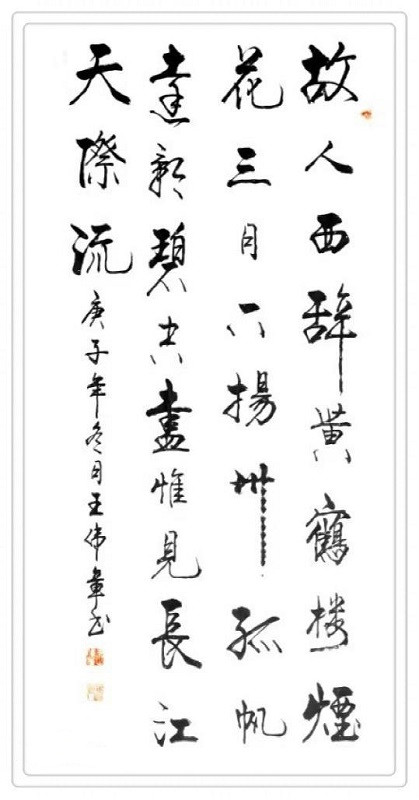 故人西辞黄鶴楼煙
花三月下揚州孤帆
遠影碧空盡惟見長江
天際流
庚子年冬月王伟章书